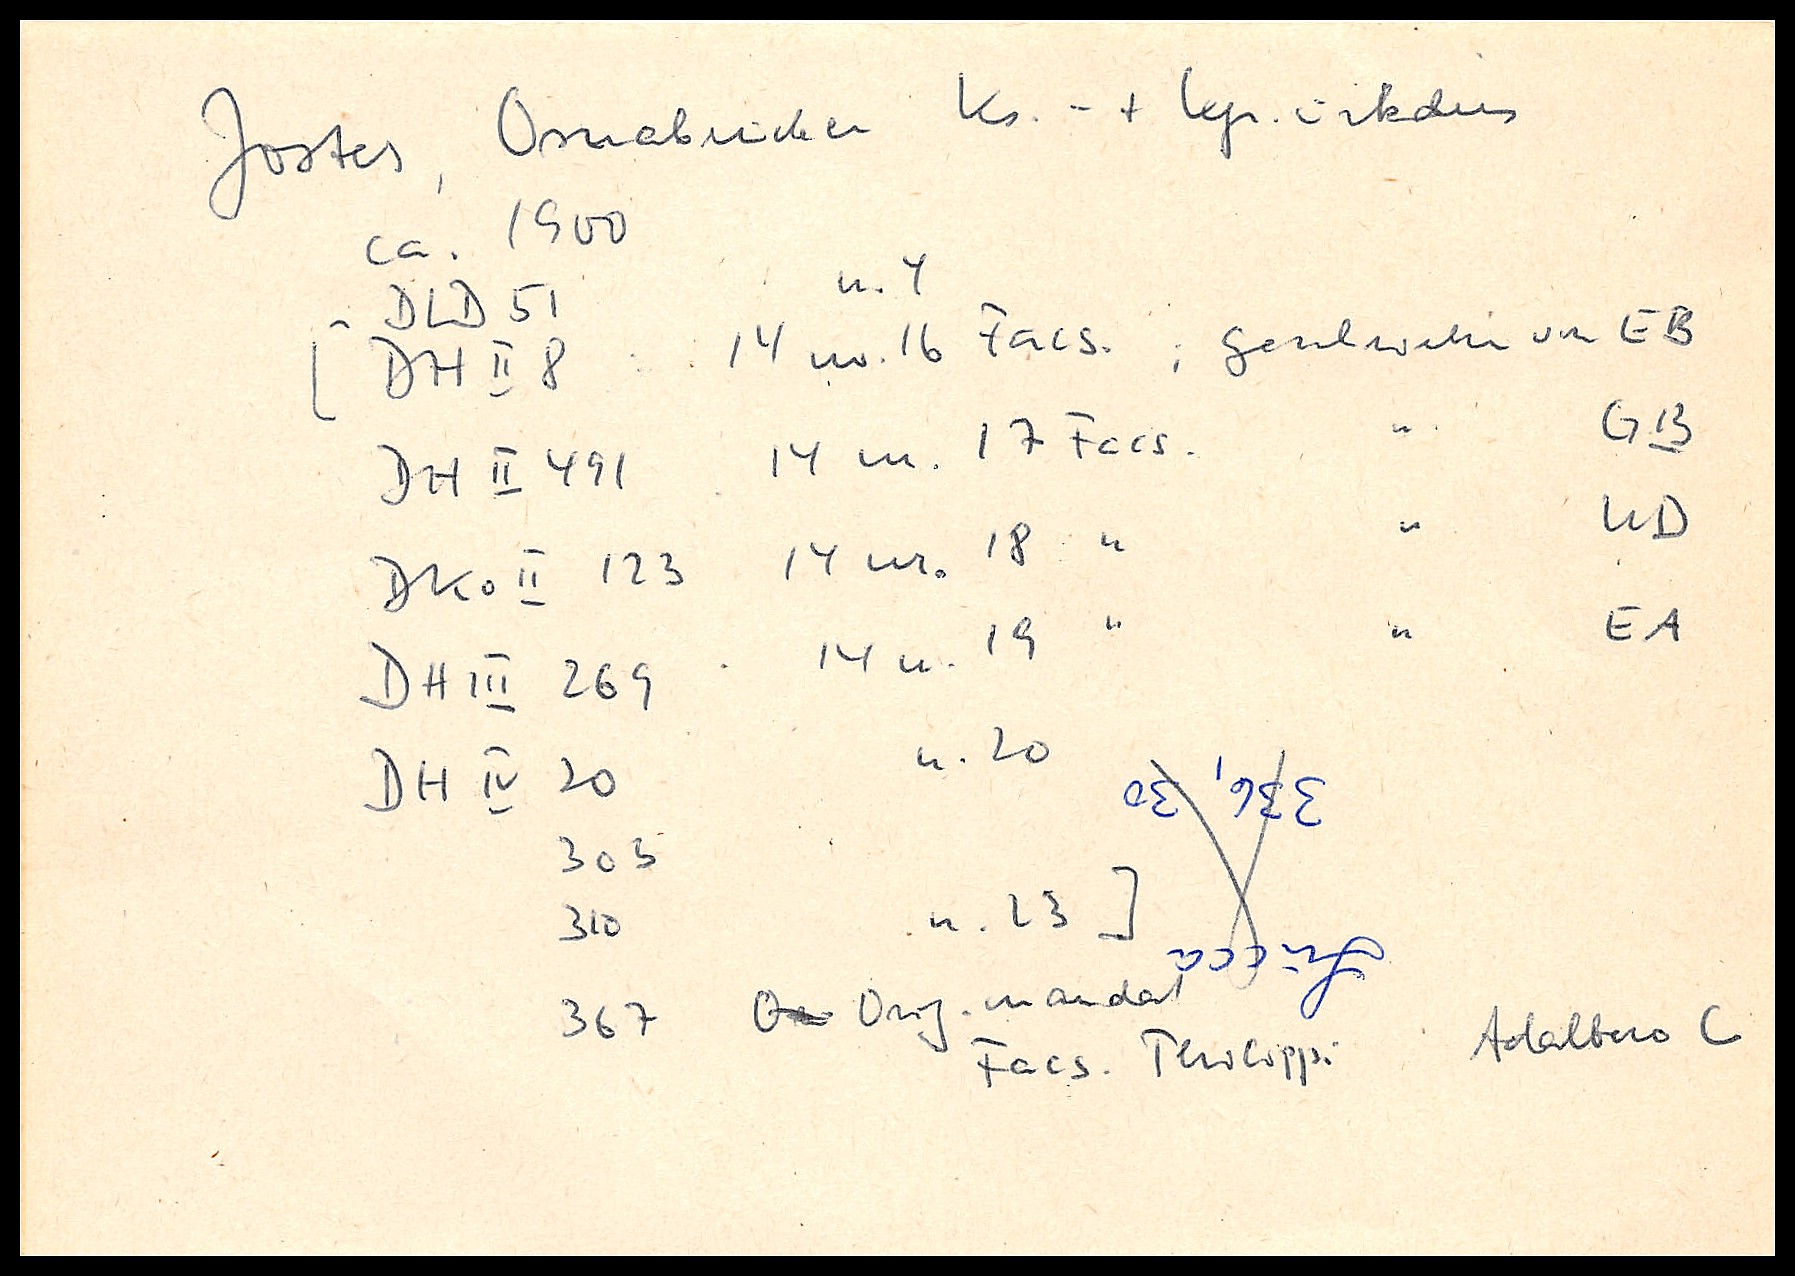 Jostes, Osnabrücker Ks. - + kgr. urkdens
ca. 1900
DLD 51 n. 4
[ DH II 8 14 nr. 16 Facs. ; geschrieben von EB
DH II 491 14 nr. 17 Facs. " GB
DKo II 123 14 nr. 18 " " UD
DH III 269 14 n. 19 " " EA
DH IV 20 n. 20
336, 30
303
310 n. 23 ]
367 Orig. mandat
Facs. Philippi Adalbero C